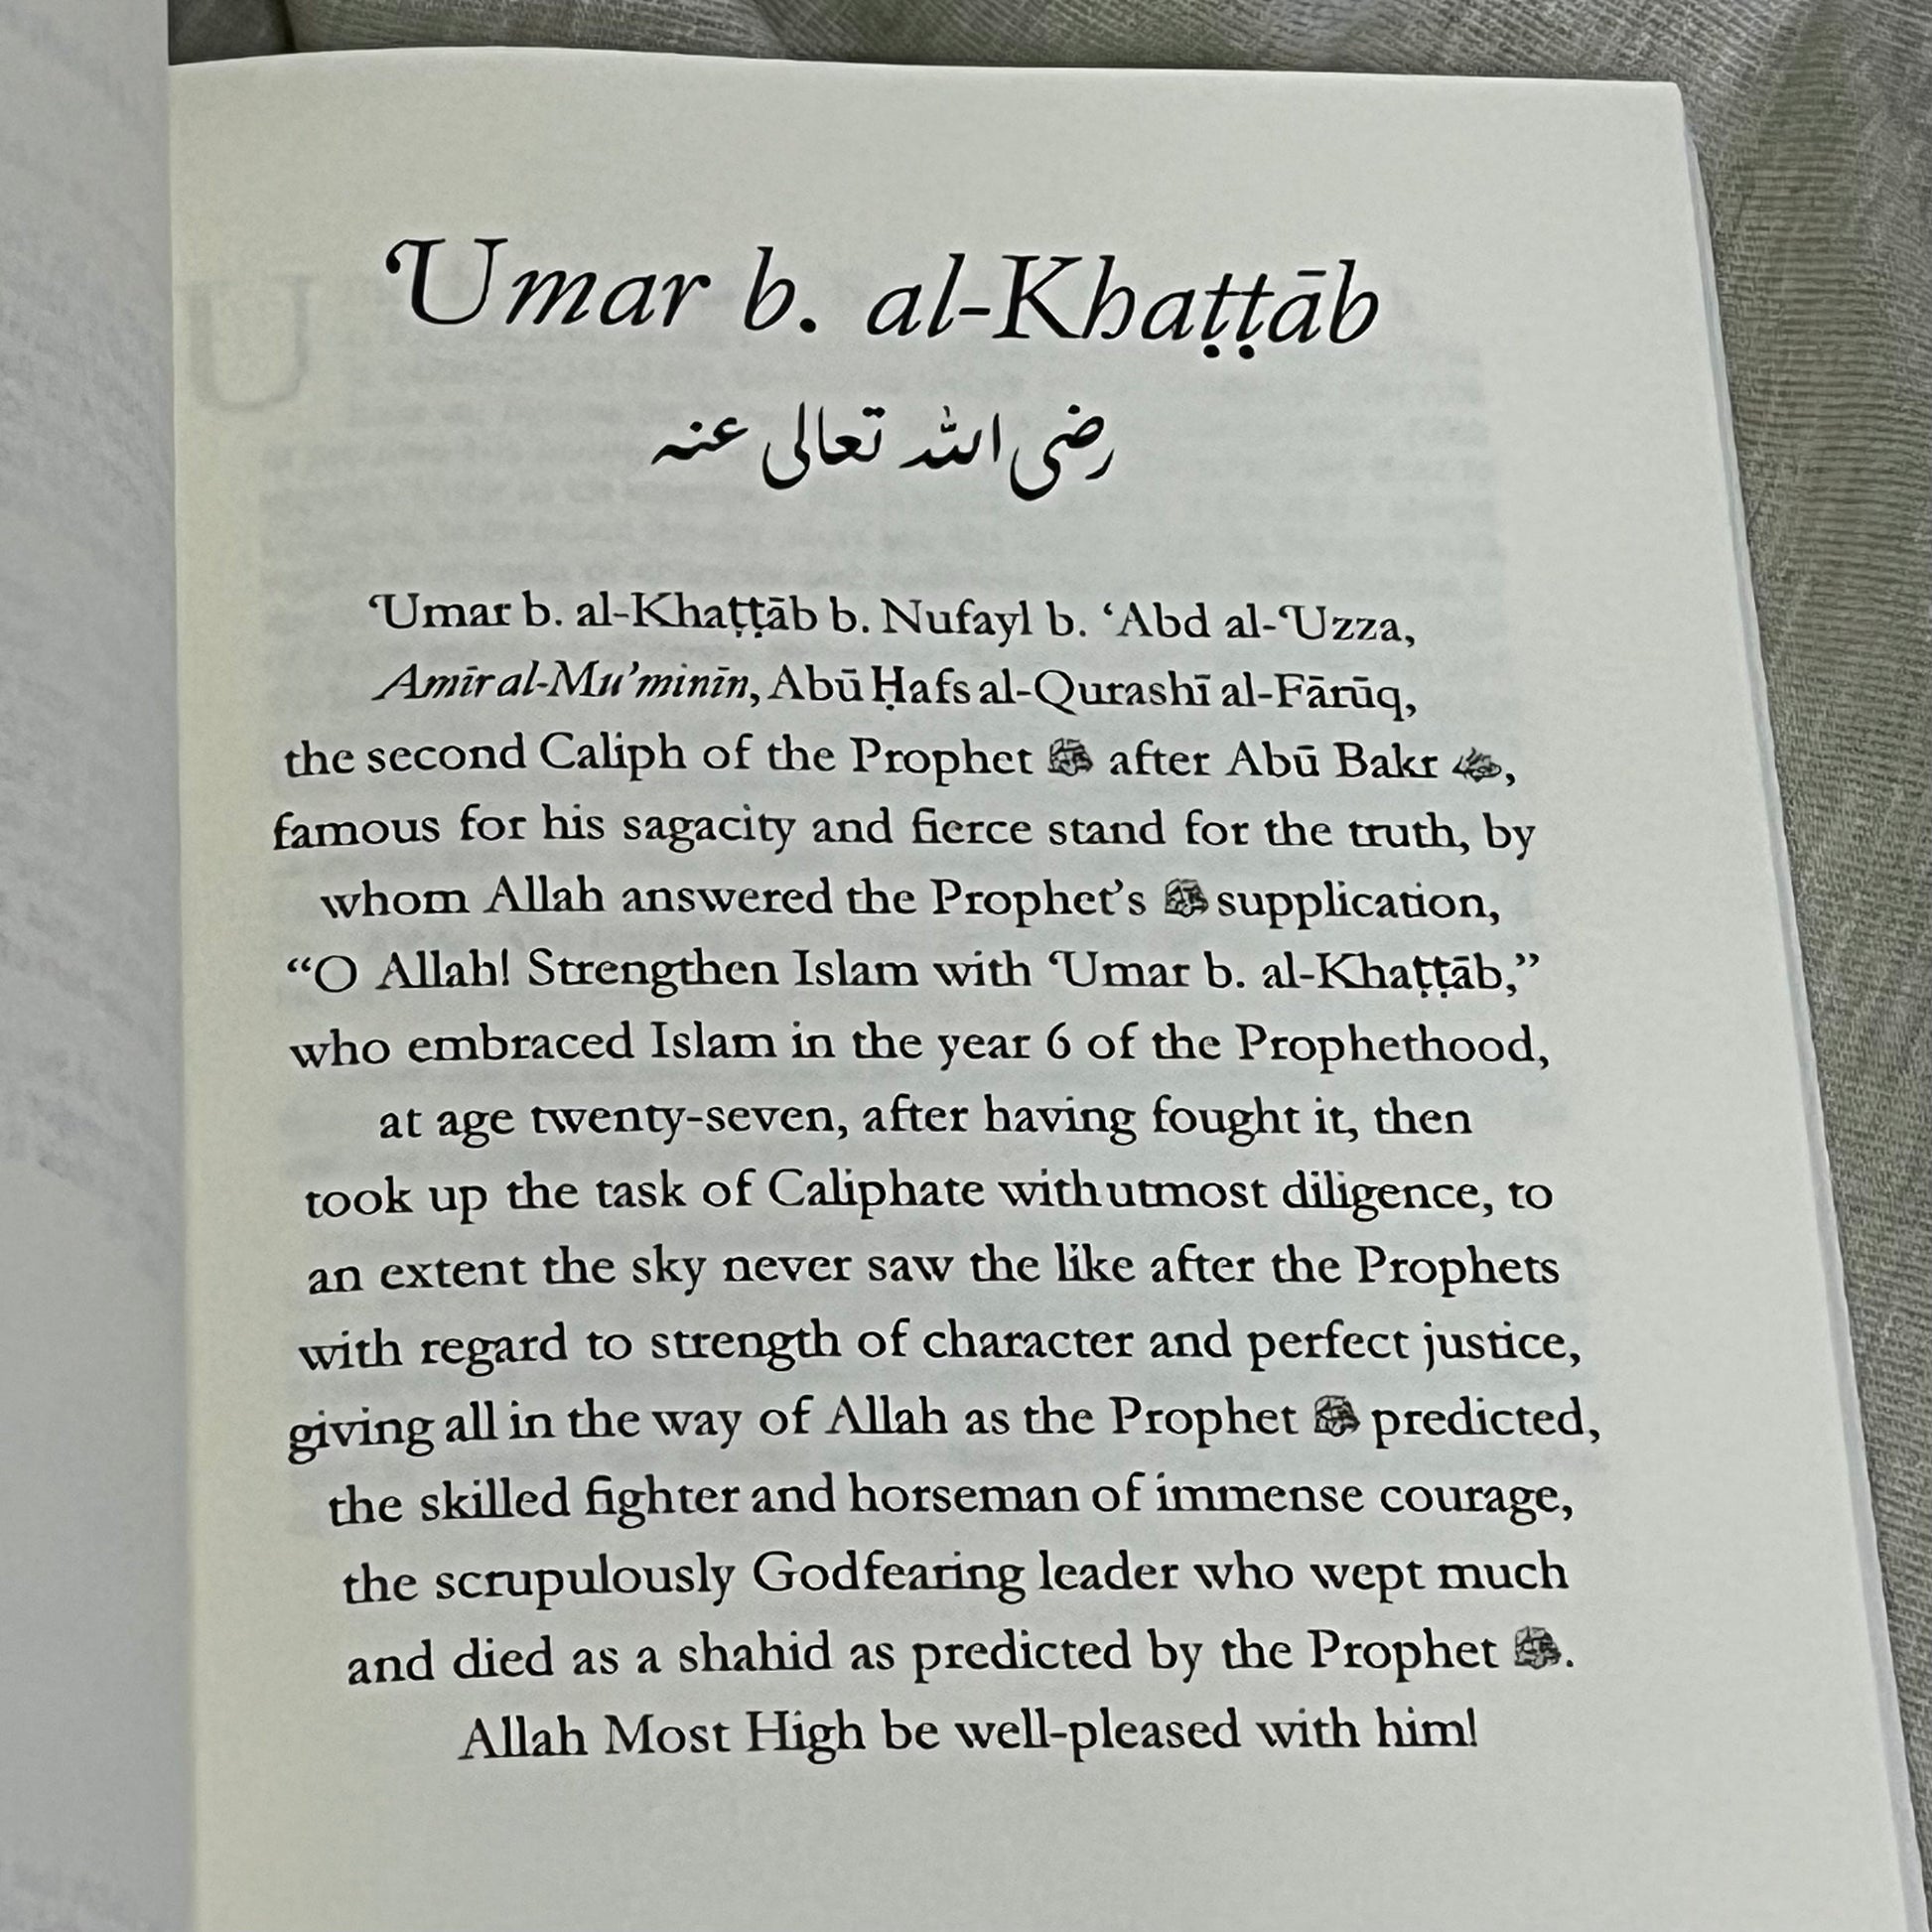 ʿUmar b. al-Khaṭṭāb
رضى الله تعالى عنه
ʿUmar b. al-Khaṭṭāb b. Nufayl b. ʿAbd al-ʿUzza,
Amīr al-Mu’minīn, Abū Ḥafs al-Qurashī al-Fārūq,
the second Caliph of the Prophet ﷺ after Abū Bakr,
famous for his sagacity and fierce stand for the truth, by
whom Allah answered the Prophet’s ﷺ supplication,
“O Allah! Strengthen Islam with ʿUmar b. al-Khaṭṭāb,”
who embraced Islam in the year 6 of the Prophethood,
at age twenty-seven, after having fought it, then
took up the task of Caliphate with utmost diligence, to
an extent the sky never saw the like after the Prophets
with regard to strength of character and perfect justice,
giving all in the way of Allah as the Prophet ﷺ predicted,
the skilled fighter and horseman of immense courage,
the scrupulously Godfearing leader who wept much
and died as a shahid as predicted by the Prophet ﷺ.
Allah Most High be well-pleased with him!